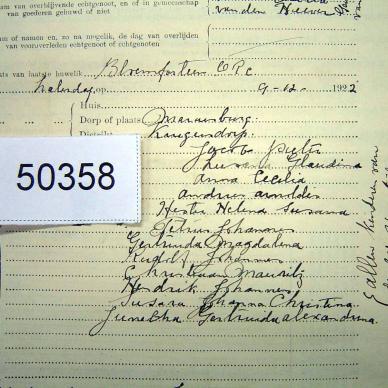 am van overblijvende echtgenoot, en of in gemeenschap
van goederen gehuwd of niet
van den Heever
um of namen en, zo na mogelik, de dag van overlijden
van vooroverleden echtgenoot of echtgenoten
aats van laatste huwelik Bloemfontein O.P.C.
op 9-12- 1922
Huis
Dorp of plaats
Distrikt Krugersdorp.
Jacoba
Susara Claudina
Anna Cecilia
Andries Arnoldus
Hester Helena Susanna
50358
Petrus Johannes
Gertruida Magdalena
Rudolf Johannes
Christiaan Mauritz
Hendrik Johannes
Susara Johanna Christina
Gertruida Alexandrina
allen kinderen van